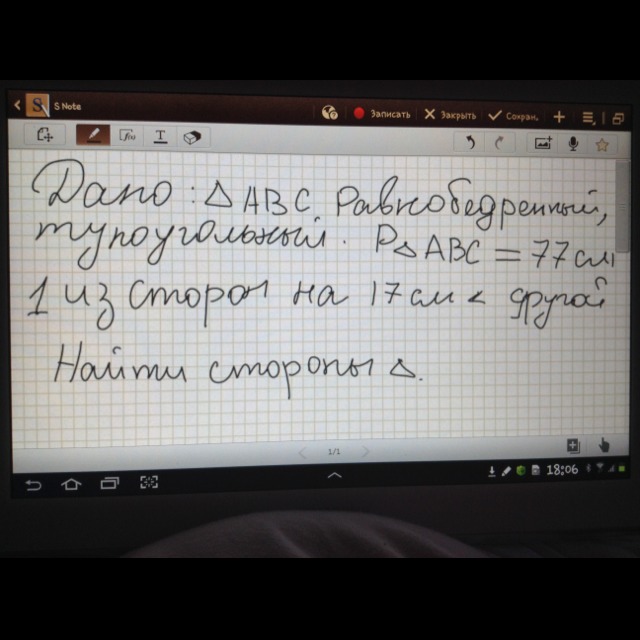 S Note
Записать
Закрыть
Сохран.
Дано: △ ABC равнобедренный,
тупоугольный. P△ABC = 77 см
1 из сторон на 17 см < другой
Найти стороны △.
1/1
18:06